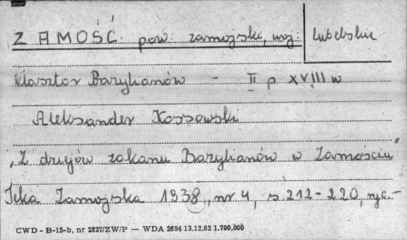 ZAMOŚĆ pow. zamojski, woj. lubelskie
klasztor Bazylianów - II p XVIII w
Aleksander Kossowski
„Z dziejów zakonu Bazylianów w Zamościu"
Teka Zamojska 1938, nr 4, s. 212-220, ryc.-
CWD - B-15-b, nr 2827/ZW/P — WDA 2694 13.12.62 1.700.000